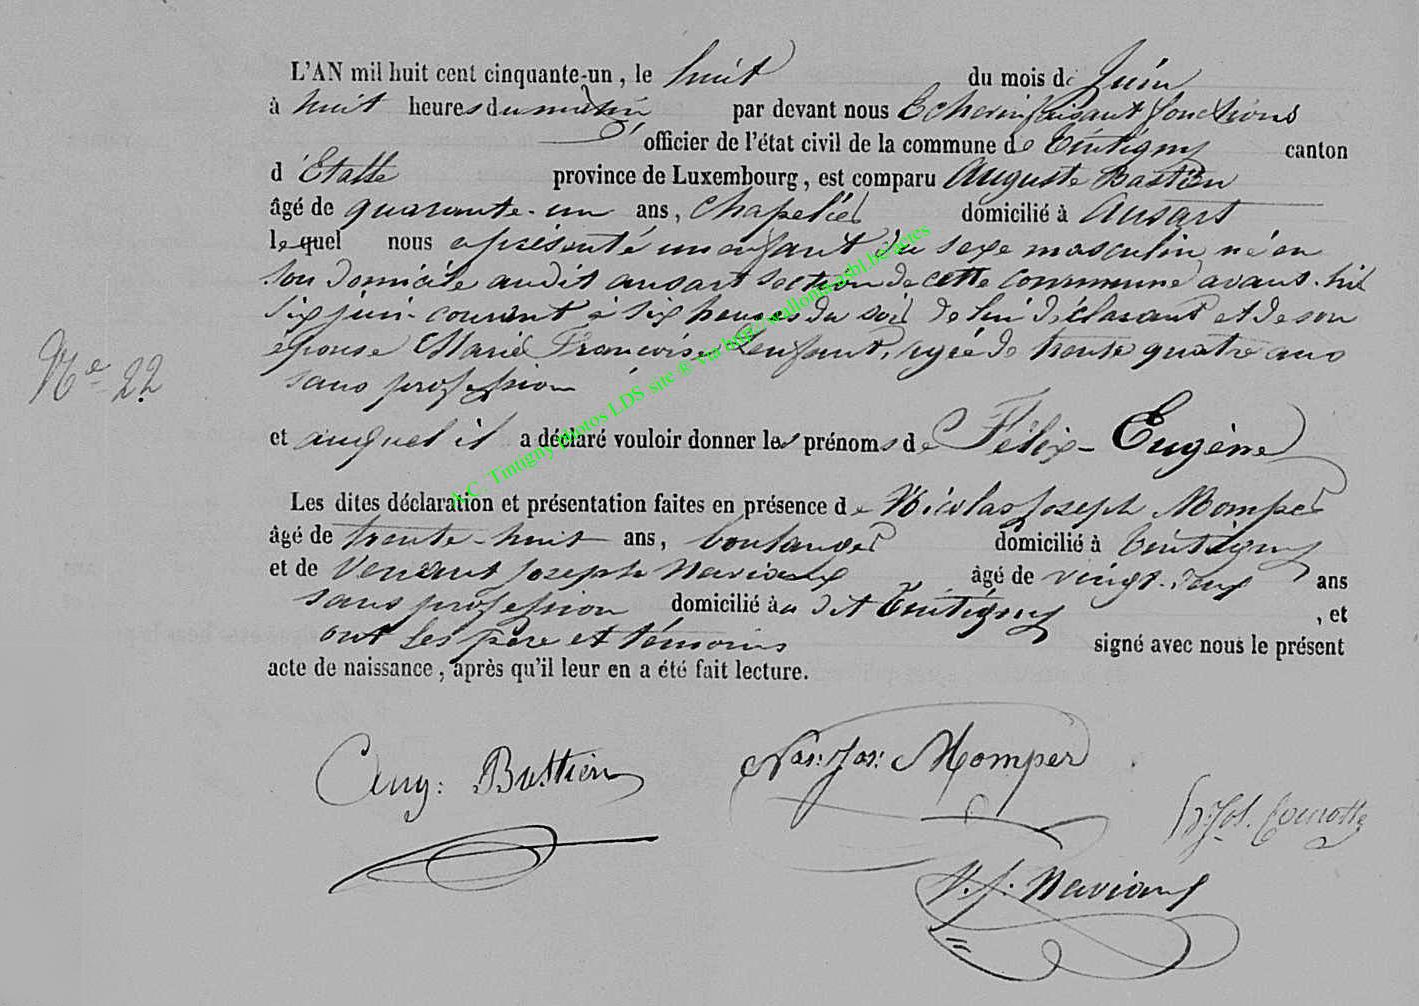 L'AN mil huit cent cinquante-un, le huit du mois de Juin
à huit heures du matin par devant nous Echevin faisant fonctions
d' officier de l'état civil de la commune de Tintigny canton
d'Etalle province de Luxembourg, est comparu Auguste Bastien
âgé de quarante-un ans, chapelier domicilié à Ansart
lequel nous a présenté un enfant du sexe masculin né en
son domicile audit ansart section de cette commune avant-hier
six juin courant à six heures du soir de lui déclarant et de son
épouse Marie Françoise Lenfant, agée de trente quatre ans
sans profession
Nº 22
et auquel il a déclaré vouloir donner les prénoms de Félix-Eugène
Les dites déclaration et présentation faites en présence de Nicolas Joseph Momper
âgé de trente-huit ans, boulanger domicilié à Tintigny
et de Venant Joseph Naviaux âgé de vingt- ans
sans profession domicilié au dit Tintigny, et
ont les père et témoins signé avec nous le présent
acte de naissance, après qu'il leur en a été fait lecture.
Aug: Bastien
Nas: Jos: Momper
Jos.
V. J. Naviaux
A.C. Tintigny photos LDS site @ via http://wallonia-asbl.be/actes